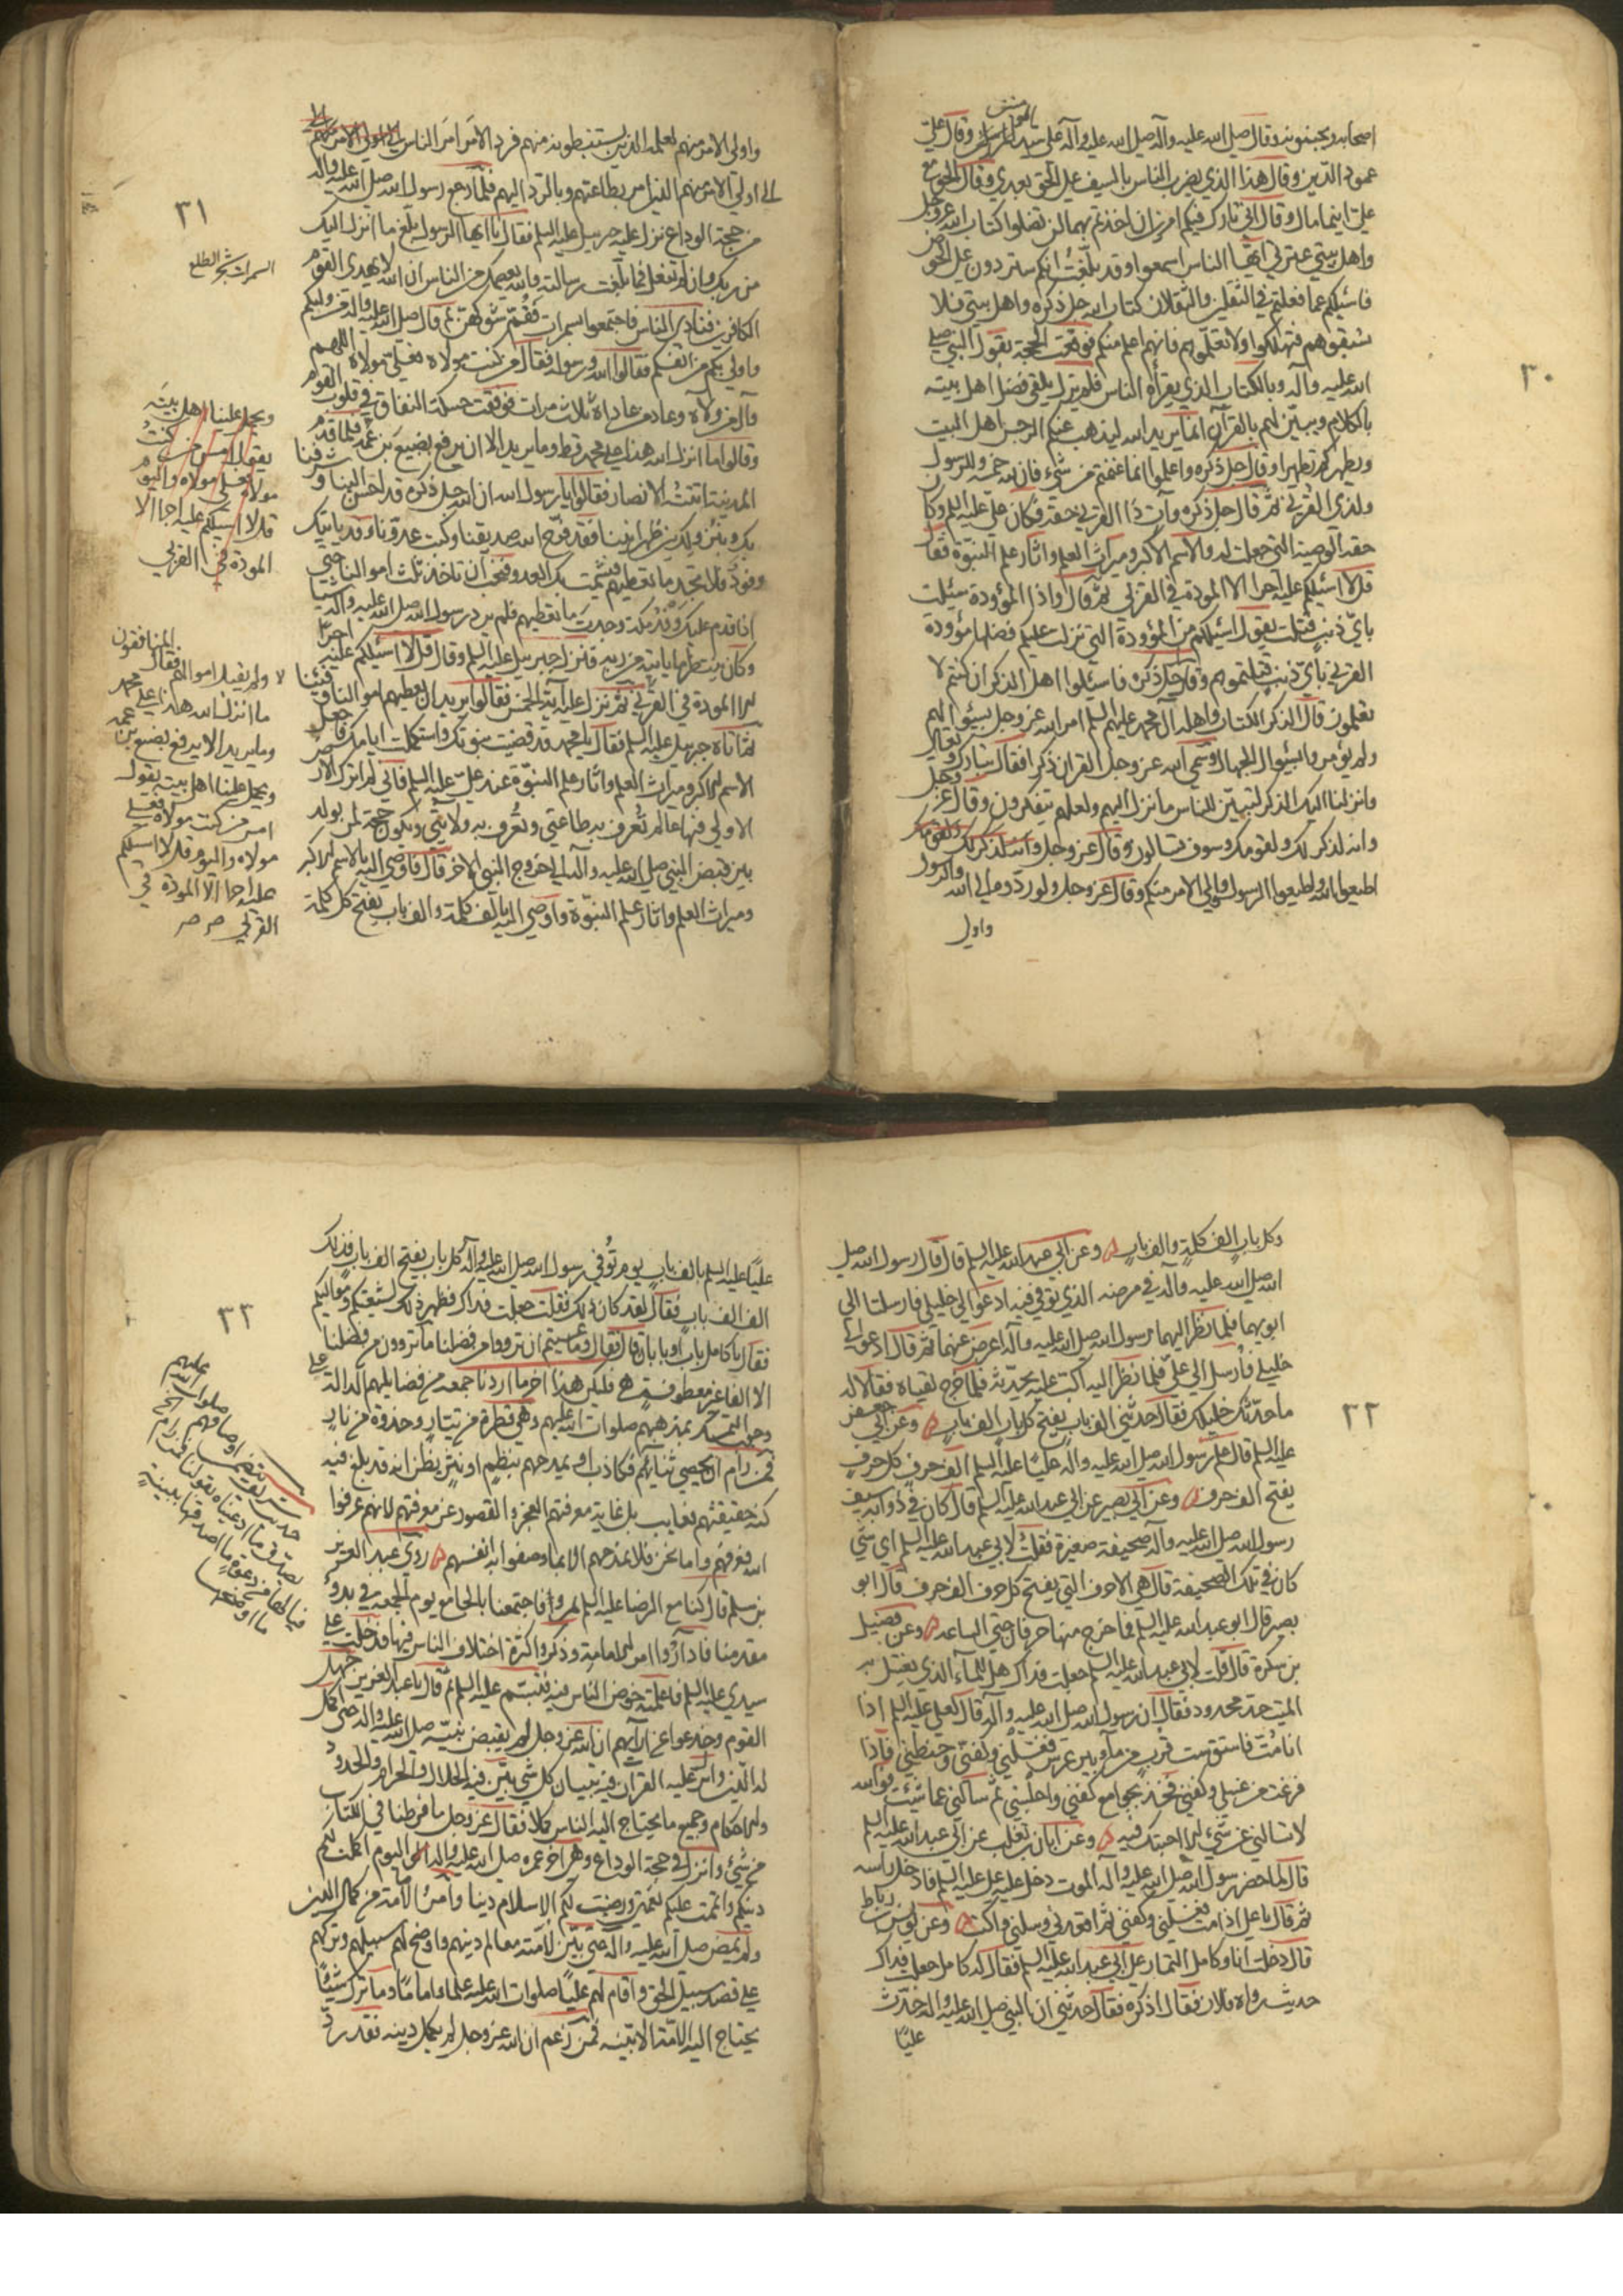 اصحابه ويجبنونه وقال صلى الله عليه وآله علي سيد المؤمنين وقال علي
عمود الدين وقال هذا الذي يضرب الناس بالسيف على الحق بعدي وقال الحق مع
علي اينما مال وقال اني تارك فيكم امرين ان اخذتم بهما لن تضلوا كتاب الله عز وجل
واهل بيتي عترتي ايها الناس اسمعوا وقد بلغت انكم ستردون علي الحوض
فاسئلكم عما فعلتم في الثقلين والثقلان كتاب الله جل ذكره واهل بيتي فلا
تسبقوهم فتهلكوا ولا تعلموهم فانهم اعلم منكم فوقعت الحجة بقول النبي صلى
الله عليه وآله وبالكتاب الذي يقرأه الناس فلم يزل يلقي فضل اهل بيته
بالكلام ويبين لهم بالقرآن انما يريد الله ليذهب عنكم الرجس اهل البيت
ويطهركم تطهيرا وقال جل ذكره واعلموا انما غنمتم من شيء فان لله خمسه وللرسول
ولذي القربى ثم قال جل ذكره وآت ذا القربى حقه فكان علي عليه السلم وكان
حقه الوصية التي جعلت له والاسم الاكبر وميراث العلم واثار علم النبوة فقال
قل لا اسئلكم عليه اجرا الا المودة في القربى ثم قال واذا المؤودة سئلت
باي ذنب قتلت يقول اسئلكم عن المؤودة التي نزلت عليكم فضلها مؤودة
القربى باي ذنب قتلتموهم وقال جل ذكره فاسئلوا اهل الذكر ان كنتم لا
تعلمون قال الذكر الكتاب واهله آل محمد عليهم السلم امر الله عز وجل بسؤالهم
ولم يؤمروا بسؤال الجهال وسمى الله عز وجل القران ذكرا فقال تبارك وتعالى
وانزلنا اليك الذكر لتبين للناس ما نزل اليهم ولعلهم يتفكرون وقال عز وجل
وانه لذكر لك ولقومك وسوف تسالون وقال عز وجل وانه لذكر لك ولقومك
اطيعوا الله واطيعوا الرسول واولي الامر منكم وقال عز وجل ولو ردوه الى الله والرسول
واولي
٣٠
واولي الامر منهم لعلمه الذين يستنبطونه منهم فرد الامر امر الناس الى اولي الامر منهم
الى اولي الامر منهم الذين امر بطاعتهم وبالرد اليهم فلما رجع رسول الله صلى الله عليه وآله
من حجة الوداع نزل عليه جبرئيل عليه السلم فقال يا ايها الرسول بلغ ما انزل اليك
من ربك وان لم تفعل فما بلغت رسالته والله يعصمك من الناس ان الله لا يهدي القوم
الكافرين فنادى الناس فاجتمعوا وامر بسمرات فقم شوكهن ثم قال صلى الله عليه وآله من وليكم
واولى بكم من انفسكم فقالوا الله ورسوله فقال من كنت مولاه فعلي مولاه اللهم
وال من والاه وعاد من عاداه ثلاث مرات فوقعت حسكة النفاق في قلوب القوم
وقالوا ما انزل الله هذا على محمد قط وما يريد الا ان يرفع بضبع بن عمه فلما قدم
المدينة اتته الانصار فقالوا يا رسول الله ان الله جل ذكره قد احسن الينا وشرفنا
بك وبنزولك بين ظهرانينا فقد فرح الله صديقنا وكبت عدونا وقد ياتيك
وفود فلا تجد ما تعطيهم فيشمت بك العدو فنحب ان تاخذ ثلث اموالنا حتى
اذا قدم عليك وفد مكة وجدت ما تعطيهم فلم يرد رسول الله صلى الله عليه وآله شيئا
وكان ينتظر ما ياتيه من ربه فنزل جبرئيل عليه السلم وقال قل لا اسئلكم عليه اجرا
الا المودة في القربى ثم نزل عليه آية الخمس فقالوا يريد ان يعطيهم اموالنا وفيئنا
ثم اتاه جبرئيل عليه السلم فقال يا محمد قد قضيت نبوتك واستكملت ايامك فاجعل
الاسم الاكبر وميراث العلم واثار علم النبوة عند علي عليه السلم فاني لم اترك الارض
الا ولي فيها عالم تعرف به طاعتي وتعرف به ولايتي ويكون حجة لمن يولد
بين قبض النبي صلى الله عليه وآله الى خروج النبي الاخر قال فاوصى اليه بالاسم الاكبر
وميراث العلم واثار علم النبوة واوصى اليه بالف كلمة والف باب يفتح كل كلمة
٣١
السمرات شجر الطلح
ويحمل علينا اهل بيته
يقول امس من كنت
مولاه فعلي مولاه واليوم
قل لا اسئلكم عليه اجرا الا
المودة في القربى
ولم يقبل اموالهم فقال المنافقون
ما انزل الله هذا على محمد
وما يريد الا يرفع بضبع بن عمه
ويحمل علينا اهل بيته يقول
امس من كنت مولاه فعلي
مولاه واليوم قل لا اسئلكم
عليه اجرا الا المودة في
القربى صح صح
وكل باب الف كلمة والف باب وعن ابي عبد الله عليه السلم قال قال رسول الله صلى
الله صلى الله عليه وآله في مرضه الذي توفي فيه ادعوا لي خليلي فارسلتا الى
ابويهما فلما نظر اليهما رسول الله صلى الله عليه وآله اعرض عنهما ثم قال ادعوا لي
خليلي فارسل الى علي فلما نظر اليه اكب عليه يحدثه فلما خرج لقياه فقالا له
ما حدثك خليلك فقال حدثني الف باب يفتح كل باب الف باب وعن ابي جعفر
عليه السلم قال علم رسول الله صلى الله عليه وآله عليا عليه السلم الف حرف كل حرف
يفتح الف حرف وعن ابي بصير عن ابي عبد الله عليه السلم قال كان في ذؤابة سيف
رسول الله صلى الله عليه وآله صحيفة صغيرة فقلت لابي عبد الله عليه السلم اي شي
كان في تلك الصحيفة قال هي الاحرف التي يفتح كل حرف الف حرف قال ابو
بصير قال ابو عبد الله عليه السلم فما خرج منها حرفان حتى الساعة وعن فضيل
بن سكرة قال قلت لابي عبد الله عليه السلم جعلت فداك هل للماء الذي يغسل به
الميت حد محدود فقال ان رسول الله صلى الله عليه وآله قال لعلي عليه السلم اذا
انا مت فاستق ست قرب من ماء بير غرس فغسلني وكفني وحنطني فاذا
فرغت من غسلي وكفني فخذ بجوامع كفني واجلسني ثم سائلني عما شئت فوالله
لا تسالني عن شيء الا اجبتك فيه وعن ابان بن تغلب عن ابي عبد الله عليه السلم
قال لما حضر رسول الله صلى الله عليه وآله الموت دخل عليه علي عليه السلم فادخل راسه
ثم قال يا علي اذا مت فغسلني وكفني ثم اقعدني وسلني واكتب وعن يونس بن رباط
قال دخلت انا وكامل التمار على ابي عبد الله عليه السلم فقال له كامل جعلت فداك
حديث رواه فلان فقال اذكره فقال حدثني ان النبي صلى الله عليه وآله حدث
عليا
٣٢
عليا عليه السلم بالف باب يوم توفي رسول الله صلى الله عليه وآله كل باب يفتح الف باب فذلك
الف الف باب فقال لقد كان ذلك فقلت جعلت فداك فظهر ذلك لشيعتكم ومواليكم
فقال يا كامل باب او بابان فقال وما عسيتم ان ترووا من فضلنا ما تروون من فضلنا
الا الفا غير معطوفة فليكن هذا اخر ما اردنا جمعه من فضايلهم الدالة على
وجوب التمسك بمذهبهم صلوات الله عليهم وهي قطرة من تيار وجذوة من نار
فمن رام ان يحصي ثنائهم فكاذب او يمدحهم بنظم او نثر يظن انه قد بلغ فيه
كنه حقيقتهم فعايب بل غاية معرفتهم العجز والقصور عن معرفتهم لانهم عرفوا
الله فعرفهم واما نحن فلا نمدحهم الا بما وصفوا به انفسهم روى عبد العزيز
بن مسلم قال كنا مع الرضا عليه السلم بمرو فاجتمعنا بالجامع يوم الجمعه في بدو
مقدمنا فاداروا امر الامامة وذكروا كثرة اختلاف الناس فيها فدخلت على
سيدي عليه السلم فاعلمته خوض الناس فيه فتبسم عليه السلم ثم قال يا عبد العزيز جهل
القوم وخدعوا عن آرائهم ان الله عز وجل لم يقبض نبيه صلى الله عليه وآله حتى اكمل
له الدين وانزل عليه القران فيه تبيان كل شي بين فيه الحلال والحرام والحدود
والاحكام وجميع ما يحتاج اليه الناس كملا فقال عز وجل ما فرطنا في الكتاب
من شيء وانزل في حجة الوداع وهي آخر عمره صلى الله عليه وآله اليوم اكملت لكم
دينكم واتممت عليكم نعمتي ورضيت لكم الاسلام دينا وامر الامامة من كمال الدين
ولم يمض صلى الله عليه وآله حتى بين لامته معالم دينهم واوضح لهم سبيلهم وتركهم
على قصد سبيل الحق واقام لهم عليا صلوات الله عليه علما واماما وما ترك شيئا
يحتاج اليه الامة الا بينه فمن زعم ان الله عز وجل لم يكمل دينه فقد رد
٣٣